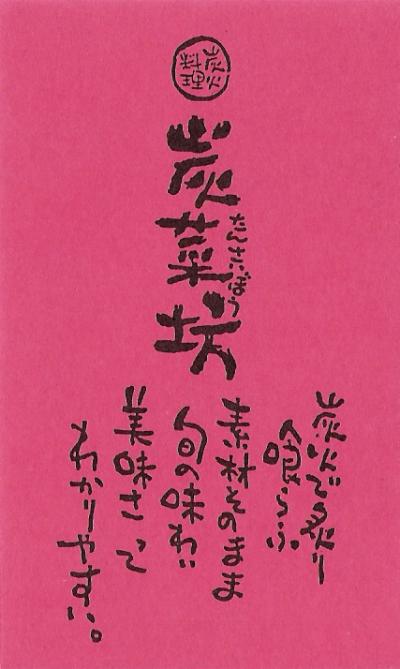 炭火
料理
炭菜坊
たんさいぼう
炭火で炙り
喰らふ
素材そのまま
旬の味わい
美味さって
わかりやすい。